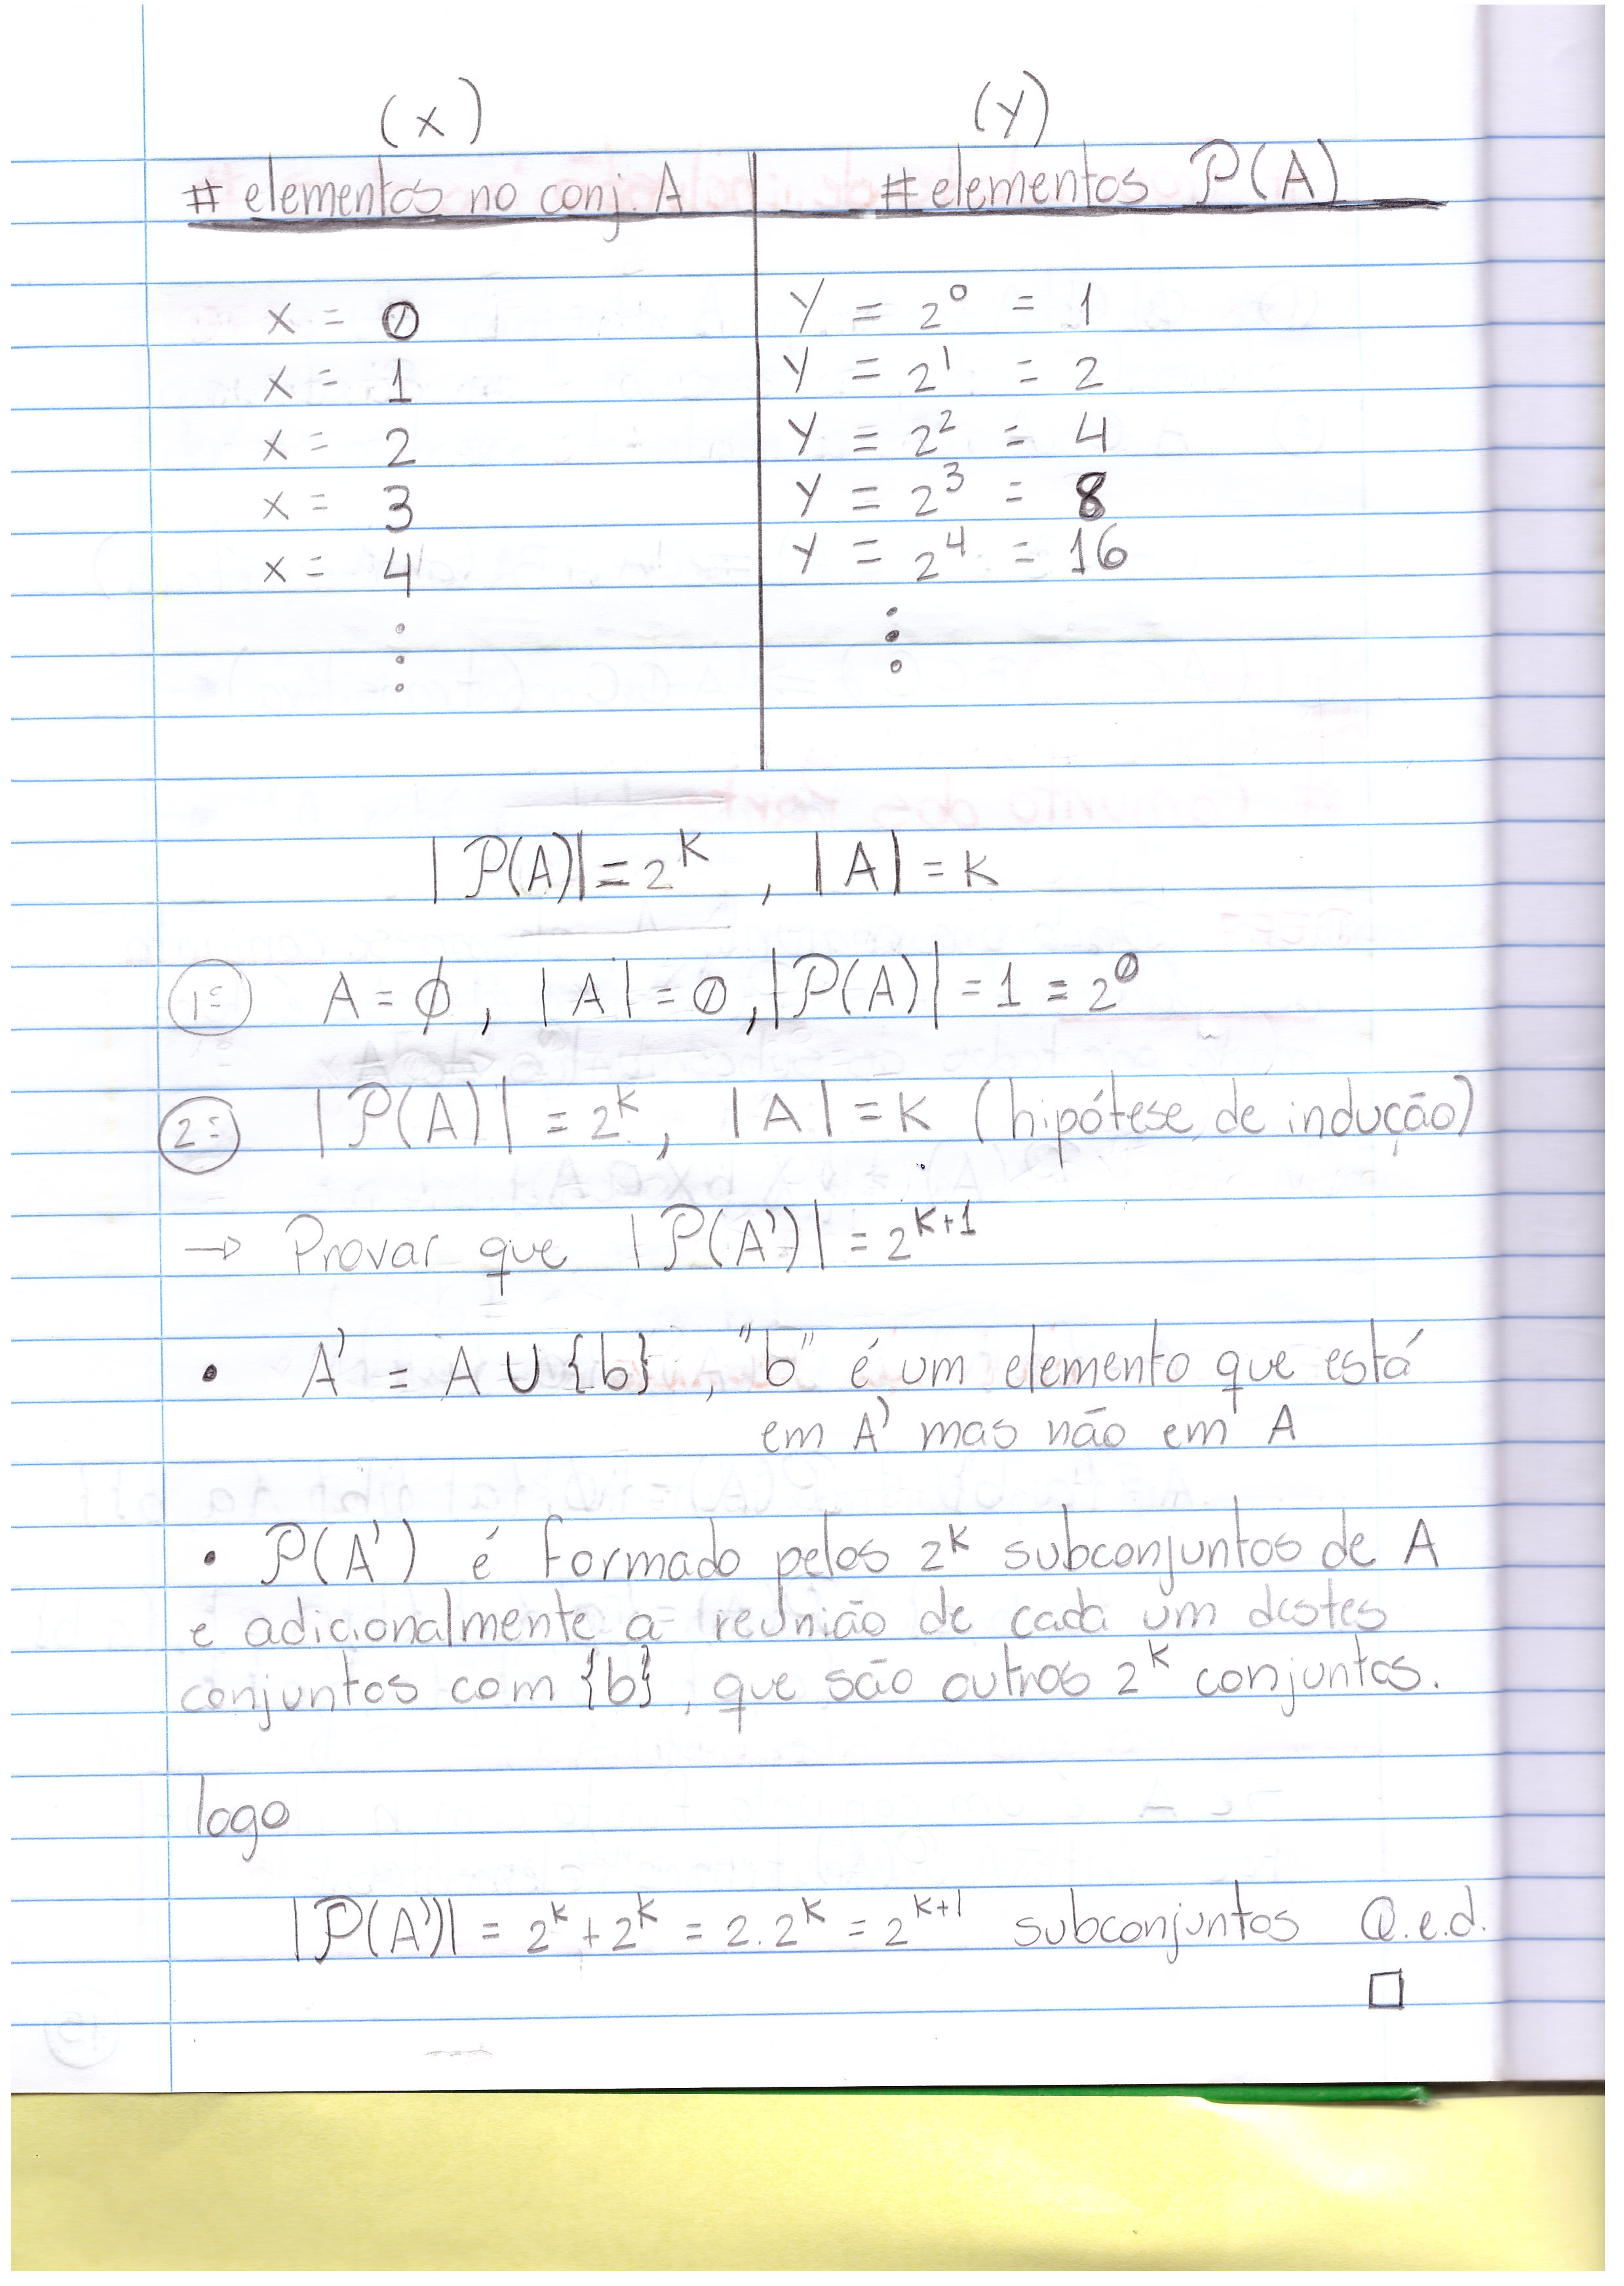 (x) (y)
# elementos no conj. A # elementos P(A)
x = 0 y = 2⁰ = 1
x = 1 y = 2¹ = 2
x = 2 y = 2² = 4
x = 3 y = 2³ = 8
x = 4 y = 2⁴ = 16
⋮ ⋮
|P(A)| = 2^K , |A| = K
1º) A = ∅, |A| = 0, |P(A)| = 1 = 2⁰
2º) |P(A)| = 2^K, |A| = K (hipótese de indução)
→ Provar que |P(A')| = 2^(K+1)
• A' = A ∪ {b}, "b" é um elemento que está
em A' mas não em A
• P(A') é formado pelos 2^K subconjuntos de A
e adicionalmente a reunião de cada um destes
conjuntos com {b}, que são outros 2^K conjuntos.
logo
|P(A')| = 2^K + 2^K = 2.2^K = 2^(K+1) subconjuntos Q.e.d.
□